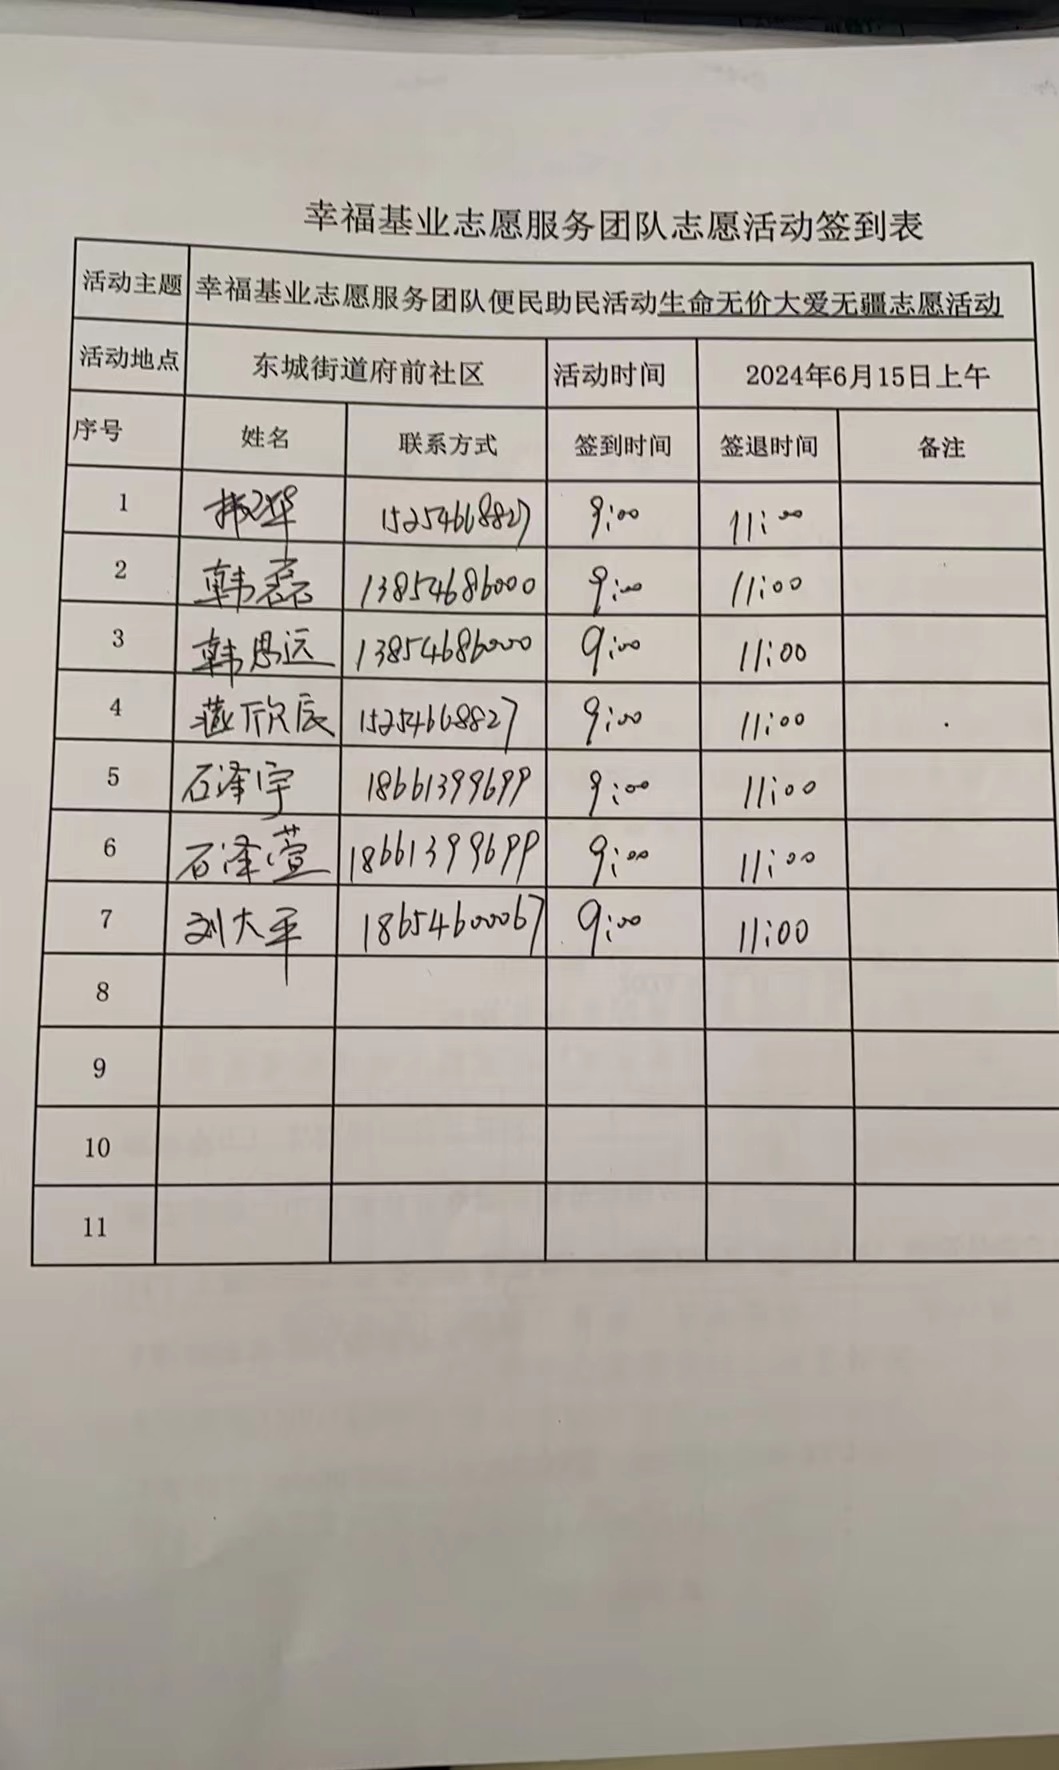 幸福基业志愿服务团队志愿活动签到表
活动主题 幸福基业志愿服务团队便民助民活动生命无价大爱无疆志愿活动
活动地点 东城街道府前社区 活动时间 2024年6月15日上午
序号 姓名 联系方式 签到时间 签退时间 备注
1 15254668827 9:00 11:00
2 韩磊 13854686000 9:00 11:00
3 韩思远 13854686000 9:00 11:00
4 欣辰 15254668827 9:00 11:00
5 石泽宇 18661399699 9:00 11:00
6 石泽萱 18661399699 9:00 11:00
7 刘大平 18654600067 9:00 11:00
8
9
10
11